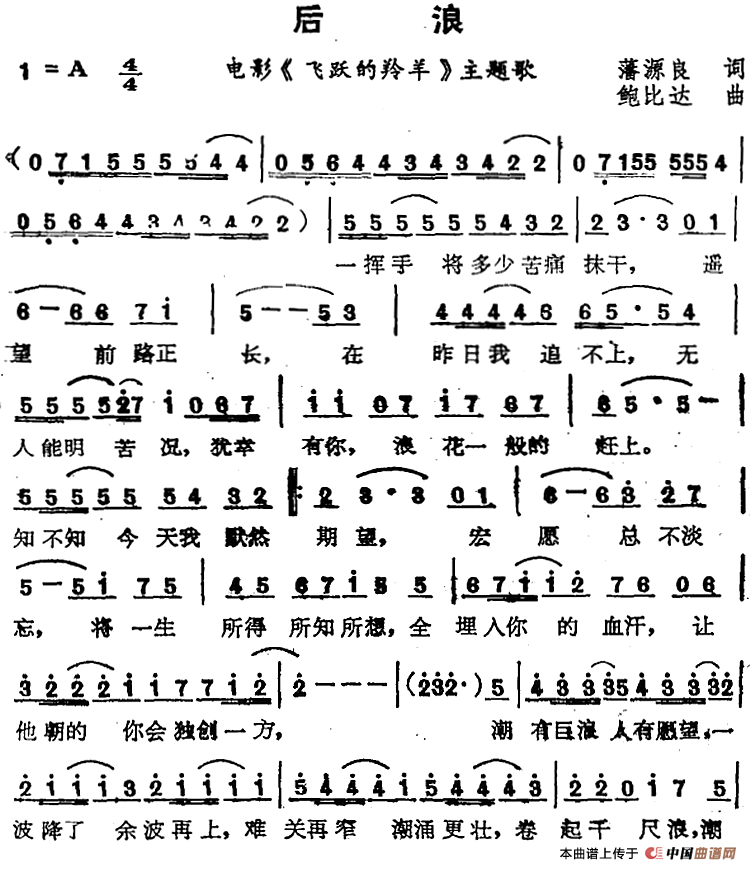 后浪
1=A 4/4 电影《飞跃的羚羊》主题歌 藩源良 词
鲍比达 曲
(0 7 1 5 5 5 5 5 4 4 | 0 5 6 4 4 3 4 3 4 2 2 | 0 7 1 5 5 5 5 5 4
0 5 6 4 4 3 4 3 4 2 2 ) | 5 5 5 5 5 5 4 3 2 | 2 3 · 3 0 1
一挥手 将多少苦痛 抹干, 遥
6 — 6 6 7 i | 5 — — 5 3 | 4 4 4 4 6 6 5 · 5 4
望 前路正 长, 在 昨日我 追不上, 无
5 5 5 5 5 2 7 i 0 6 7 | i i 0 7 i 7 6 7 | 6 5 · 5 —
人能明 苦况, 犹幸 有你, 浪花一般的 赶上。
5 5 5 5 5 5 4 3 2 |: 2 3 · 3 0 1 | 6 — 6 3 2 7
知不知今天我默然 期望, 宏愿 总不淡
5 — 5 i 7 5 | 4 5 6 7 i 5 5 5 | 6 7 i i 2 7 6 0 6
忘, 将一生 所得所知所想, 全 埋入你的血汗, 让
3 2 2 2 i i 7 7 i 2 | 2 — — — | ( 2 3 2 · ) 5 | 4 3 3 3 5 4 3 3 3 2
他朝的 你会独创一方, 潮 有巨浪人有愿望, 一
2 i i i 3 2 i i i i | 5 4 4 4 i 5 4 4 4 3 | 2 2 0 i 7 5
波降了 余波再上, 难 关再窄 潮涌更壮, 卷 起千 尺浪, 潮
本曲谱上传于 中国曲谱网